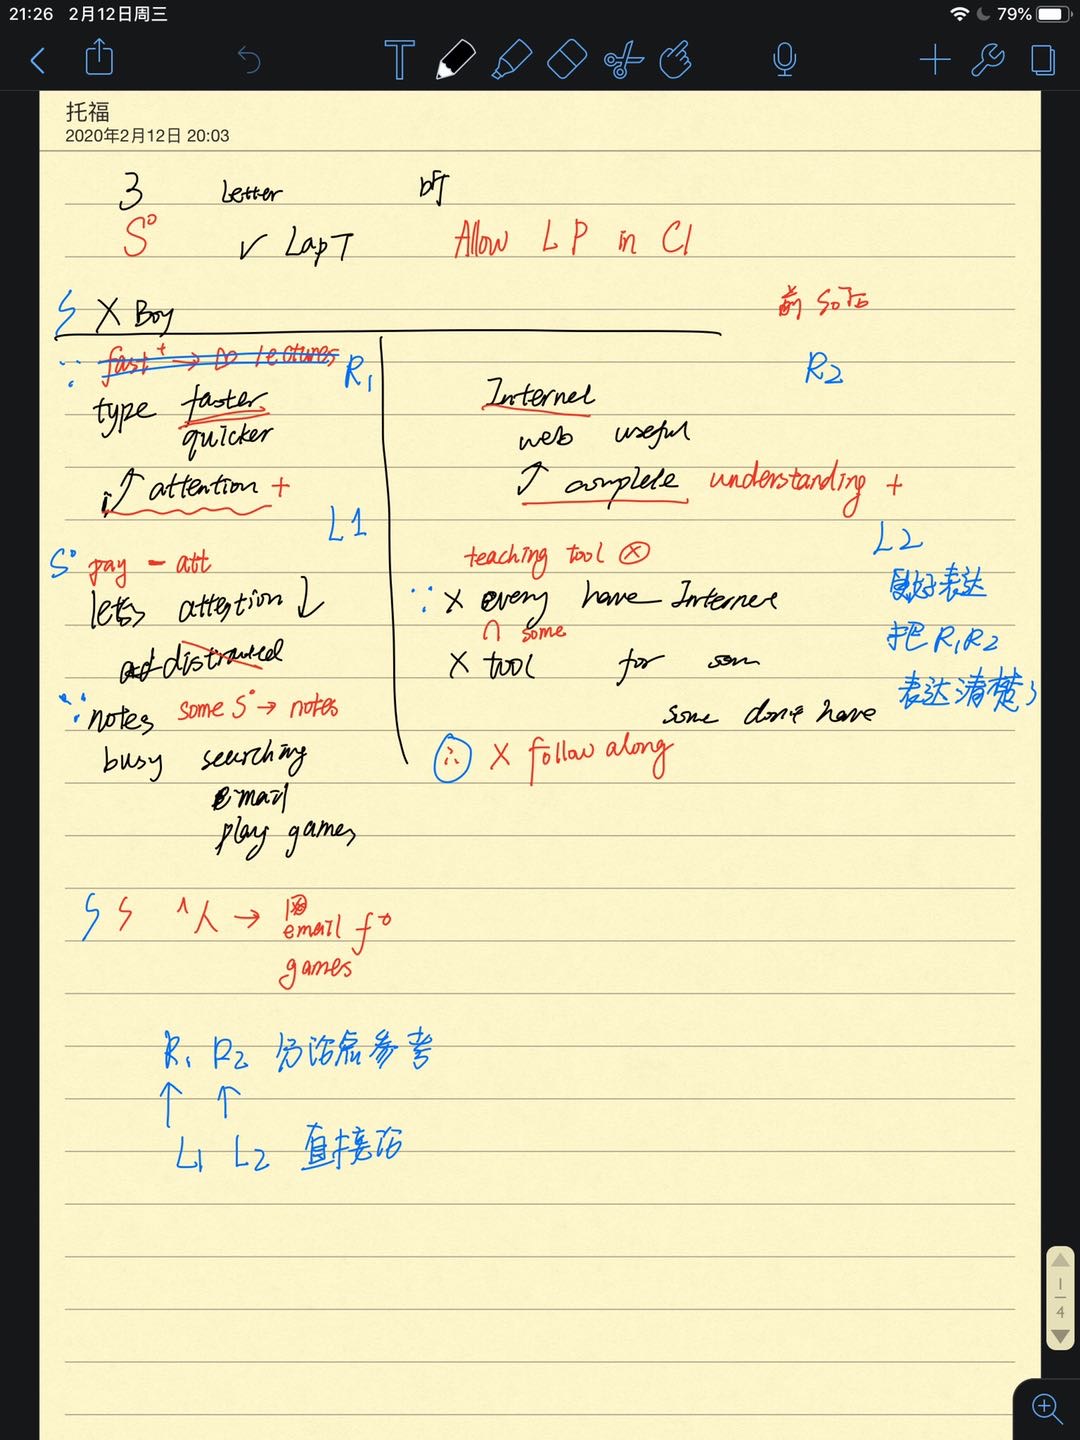 21:26 2月12日周三 79%
托福
2020年2月12日 20:03
3 Letter
S° ✓ LapT Allow LP in Cl
X Boy
fast + → lectures R1 R2
type faster Internet
quicker web useful
↑ attention + ↑ complete understanding +
L1 L2
S° pay - att teaching tool ⊗ 更好表达
lets attention ↓ ∵ X every have Internet
∩ some 把R1R2
distracted X tool for som
表达清楚了
∵ notes some S° → notes some don't have
busy searching ∴ X follow along
email
play games
人 → email
games
R1 R2 分论点参考
↑ ↑
L1 L2 直接说
1
4